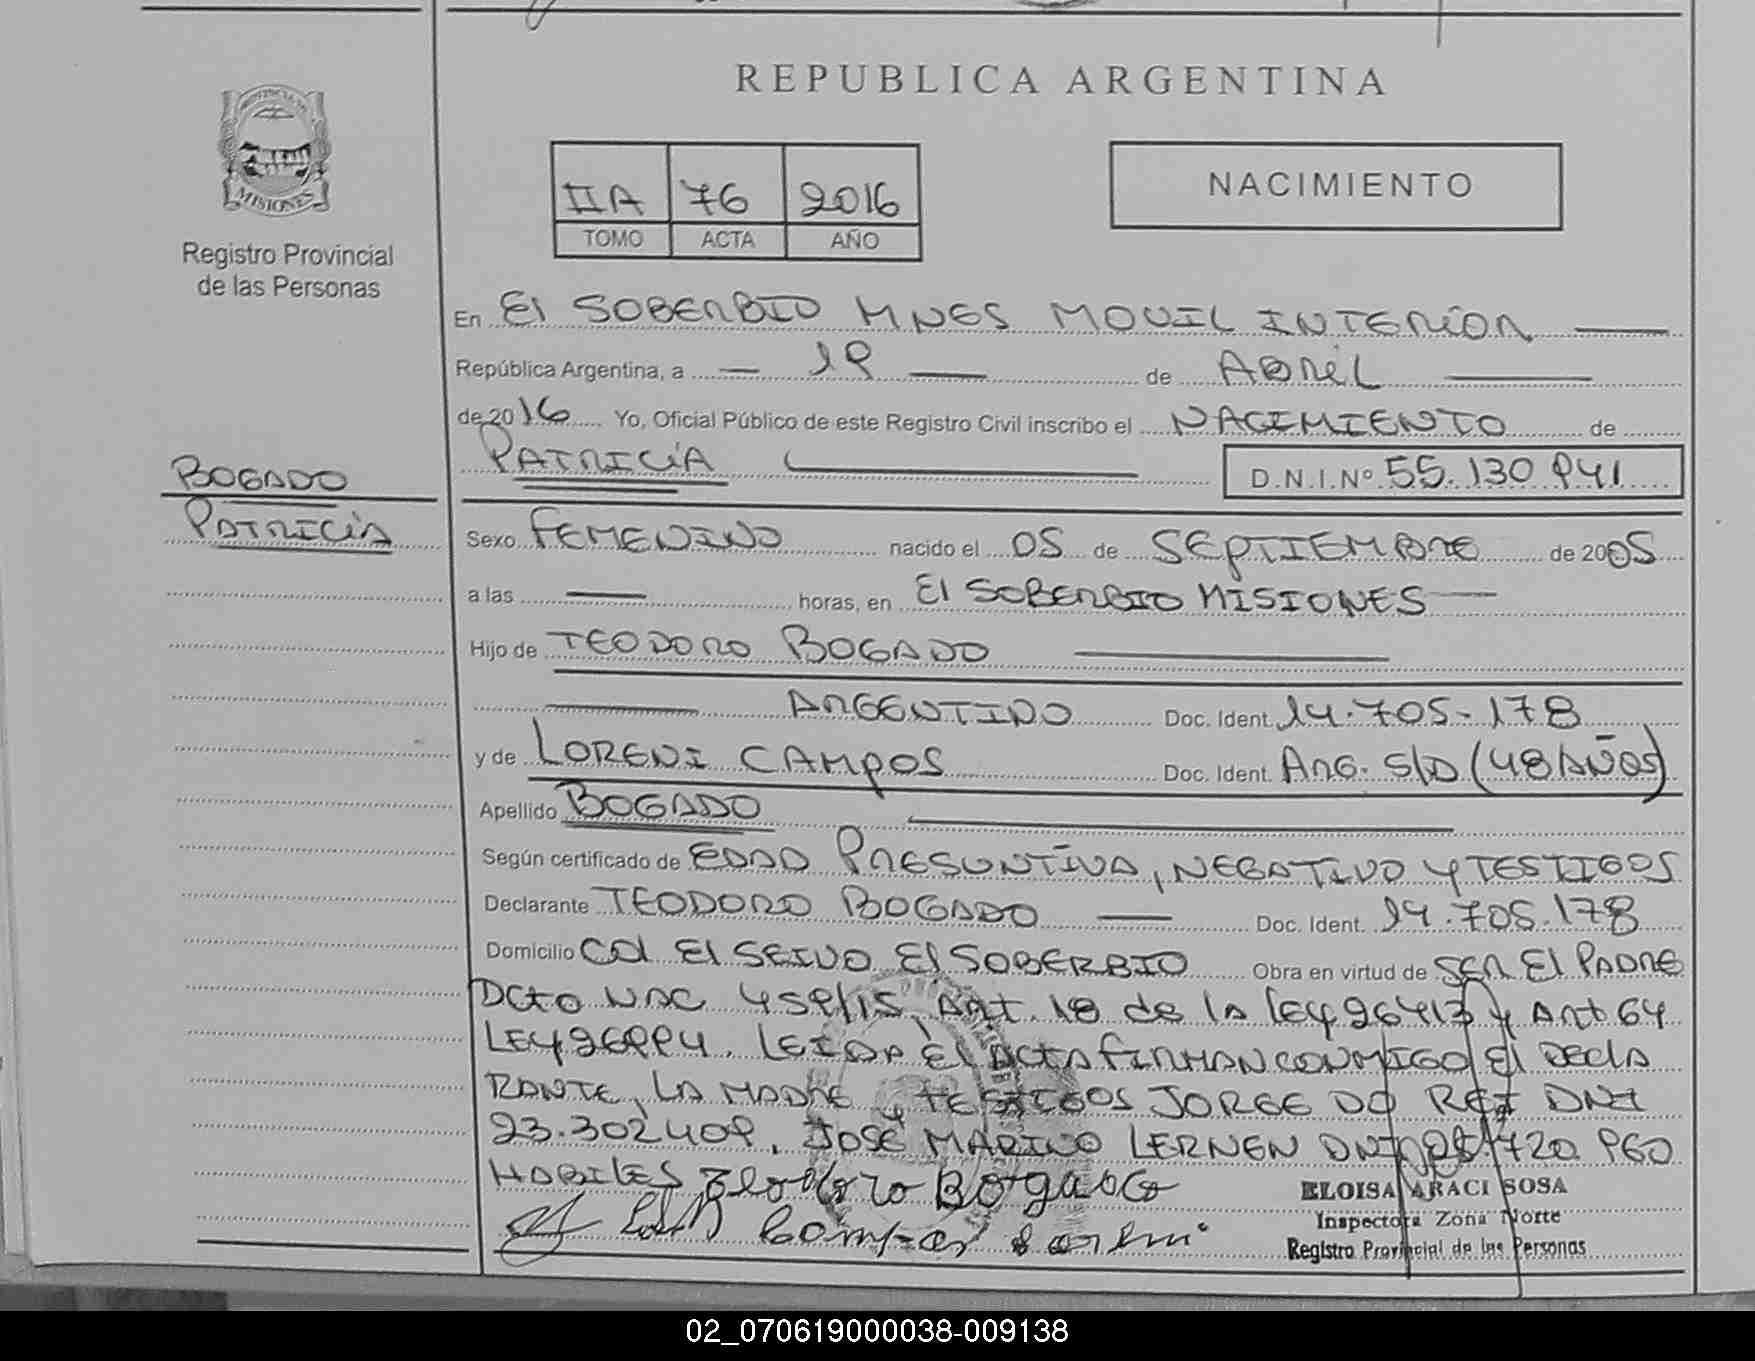 REPUBLICA ARGENTINA
PROVINCIA DE
MISIONES
Registro Provincial
de las Personas
IIA 76 2016
TOMO ACTA AÑO
NACIMIENTO
En El SOBERBIO MNES MOVIL INTERIOR
República Argentina, a 19 de ABRIL
de 2016 Yo, Oficial Público de este Registro Civil inscribo el NACIMIENTO de
PATRICIA D.N.I.Nº 55.130 941
BOGADO
PATRICIA
Sexo FEMENINO nacido el 05 de SEPTIEMBRE de 2005
a las horas, en El SOBERBIO MISIONES
Hijo de TEODORO BOGADO
ARGENTINO Doc. Ident. 14.705.178
y de LORENI CAMPOS Doc. Ident. ARG. S/D (48 AÑOS)
Apellido BOGADO
Según certificado de EDAD PRESUNTIVA, NEGATIVO Y TESTIGOS
Declarante TEODORO BOGADO Doc. Ident. 14.705.178
Domicilio Col El SEIVO El SOBERBIO Obra en virtud de SER El PADRE
DCTO NAC 459/15. Art. 18 de la ley 26413 y Art 64
LEY 26994. LEIDA El ACTA FIRMAN CONMIGO El DECLA
RANTE, LA MADRE y TESTIGOS JORGE DO REI DNI
23.302409. JOSÉ MARINO LERNEN DNI 720 960
HABILES Teodoro Bogado
Campos Loreni
ELOISA ARACI SOSA
Inspectora Zona Norte
Registro Provincial de las Personas
02_070619000038-009138